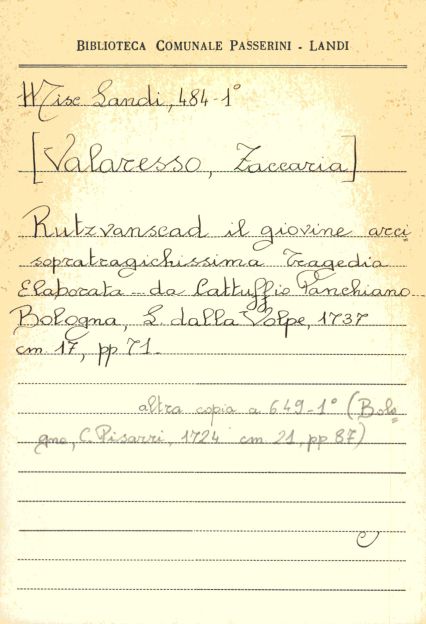 BIBLIOTECA COMUNALE PASSERINI - LANDI
Misc Landi, 484-1°
[Valaresso, Zaccaria]
Rutzvanscad il giovine arci=
sopratragichissima Tragedia
Elaborata - da Cattuffio Panchiano
Bologna, L. dalla Volpe, 1737
cm 17, pp 71-
altra copia a 649-1° (Bolo=
gna, C. Pisarri, 1724 cm 21, pp 87)